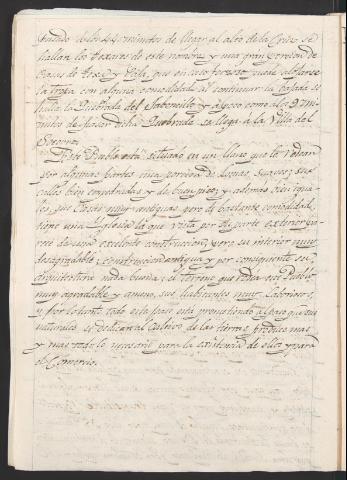 minutos de llegar al alto de la Cruz se
hallan los texares de este nombre y una gran porcion de
casas de texa y Paja, que en caso forzoso puede alojarse
la tropa con alguna comodidad. Al continuar la bajada se
halla la Quebrada del Sabonello y a poco como a los 27 mi-
nutos de pasar dicha Quebrada se llega á la Villa del
Socorro.
Este Pueblo está situado en un llano que lo rodean
por algunas partes una porcion de Lomas, suaves; sus
calles bien empedradas y de buen piso; y ademas bien igua-
les, sus Casas muy antiguas pero de bastante comodidad,
tiene una Yglesia la que vista por su parte exterior pa-
rece de una excelente construccion, pero su interior muy
desagradable; construccion antigua y por consiguiente su
arquitectura nada buena; el terreno que rodea este Pueblo
muy agradable y ameno, sus habitantes muy laboriosos,
y por lo tanto todo este pais esta prometiendo al paso que sus
naturales se dedican al cultivo de las tierras, produce mas
y mas todo lo necesario para la existencia de ellos y para
el Comercio.